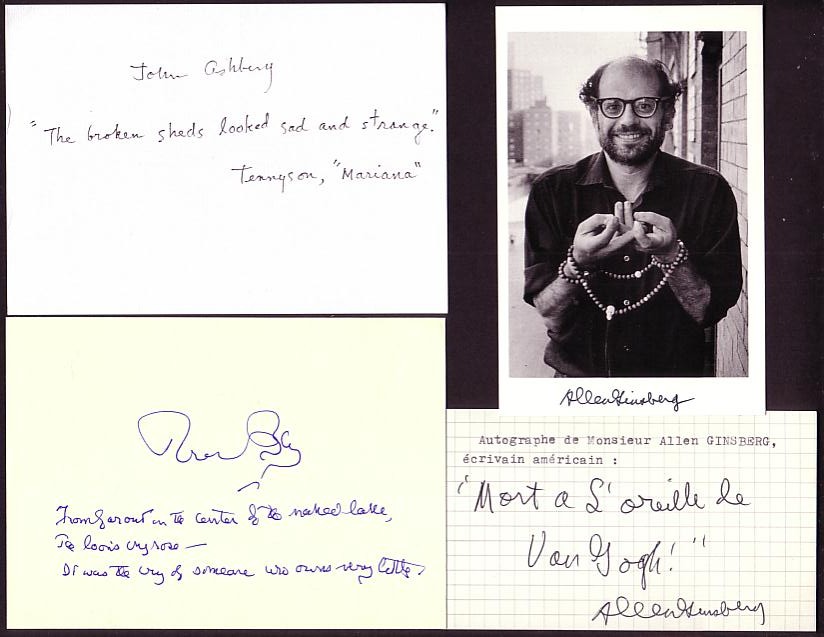 John Ashbery
"The broken sheds looked sad and strange."
Tennyson, "Mariana"
Allen Ginsberg
From far out in the center of the naked lake,
The loon's cry rose —
It was the cry of someone who owns very little.
Autographe de Monsieur Allen GINSBERG,
écrivain américain :
"Mort a L'oreille de
Van Gogh!"
Allen Ginsberg